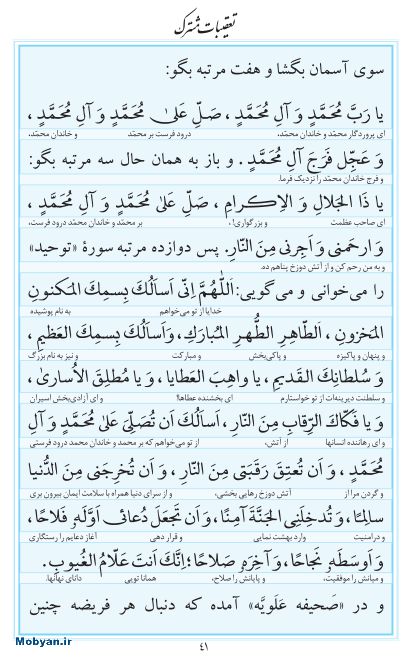 تعقیبات مشترک
سوی آسمان بگشا و هفت مرتبه بگو:
یا رَبَّ مُحَمَّدٍ وَ آلِ مُحَمَّدٍ ، صَلِّ عَلیٰ مُحَمَّدٍ وَ آلِ مُحَمَّدٍ ،
ای پروردگار محمّد و خاندان محمّد، درود فرست بر محمّد و خاندان محمّد،
وَ عَجِّل فَرَجَ آلِ مُحَمَّدٍ . و باز به همان حال سه مرتبه بگو:
و فرج خاندان محمّد را نزدیک فرما.
یا ذَا الجَلالِ وَ الاِکرامِ ، صَلِّ عَلیٰ مُحَمَّدٍ وَ آلِ مُحَمَّدٍ ،
ای صاحب عظمت و بزرگواری!، بر محمّد و خاندان محمّد درود فرست،
وَ ارحَمنی وَ اَجِرنی مِنَ النّارِ. پس دوازده مرتبه سورۀ «توحید»
و به من رحم کن و از آتش دوزخ پناهم ده.
را می‌خوانی و می‌گویی: اَللّٰهُمَّ اِنّی اَسأَلُكَ بِسمِكَ المَكنونِ
خدایا از تو می‌خواهم به نام پوشیده
المَخزونِ ، اَلطّاهِرِ الطُّهرِ المُبارَكِ، وَ اَسأَلُكَ بِسمِكَ العَظیمِ ،
و پنهان و پاکیزه و پاکی‌بخش و مبارکت و نیز به نام بزرگ
وَ سُلطانِكَ القَدیمِ ، یا واهِبَ العَطایا ، وَ یا مُطلِقَ الاُساریٰ ،
و سلطنت دیرینه‌ات از تو خواستارم ای بخشنده عطاها! و ای آزادی‌بخش اسیران
وَ یا فَكّاكَ الرِّقابِ مِنَ النّارِ ، اَسأَلُكَ اَن تُصَلِّیَ عَلیٰ مُحَمَّدٍ وَ آلِ
و ای رهاننده انسانها از آتش، از تو می‌خواهم که بر محمد و خاندان محمد درود فرستی
مُحَمَّدٍ ، وَ اَن تُعتِقَ رَقَبَتی مِنَ النّارِ ، وَ اَن تُخرِجَنی مِنَ الدُّنیا
و گردن مرا از آتش دوزخ رهایی بخشی، و از سرای دنیا همراه با سلامت ایمان بیرون بری
سالِمًا ، وَ تُدخِلَنِی الجَنَّةَ آمِنًا ، وَ اَن تَجعَلَ دُعائی اَوَّلَهُ فَلاحًا ،
و در امنیت وارد بهشت نمایی و قرار دهی آغاز دعایم را رستگاری
وَ اَوسَطَهُ نَجاحًا ، وَ آخِرَهُ صَلاحًا ؛ اِنَّكَ اَنتَ عَلّامُ الغُیوبِ.
و میانش را موفقیت، و پایانش را صلاح، همانا تویی دانای نهانها.
و در «صَحیفه عَلَویَّه» آمده که دنبال هر فریضه چنین
۴۱
Mobyan.ir